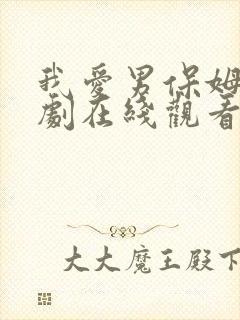 我愛男保姆
劇在綫觀看
大大魔王殿下